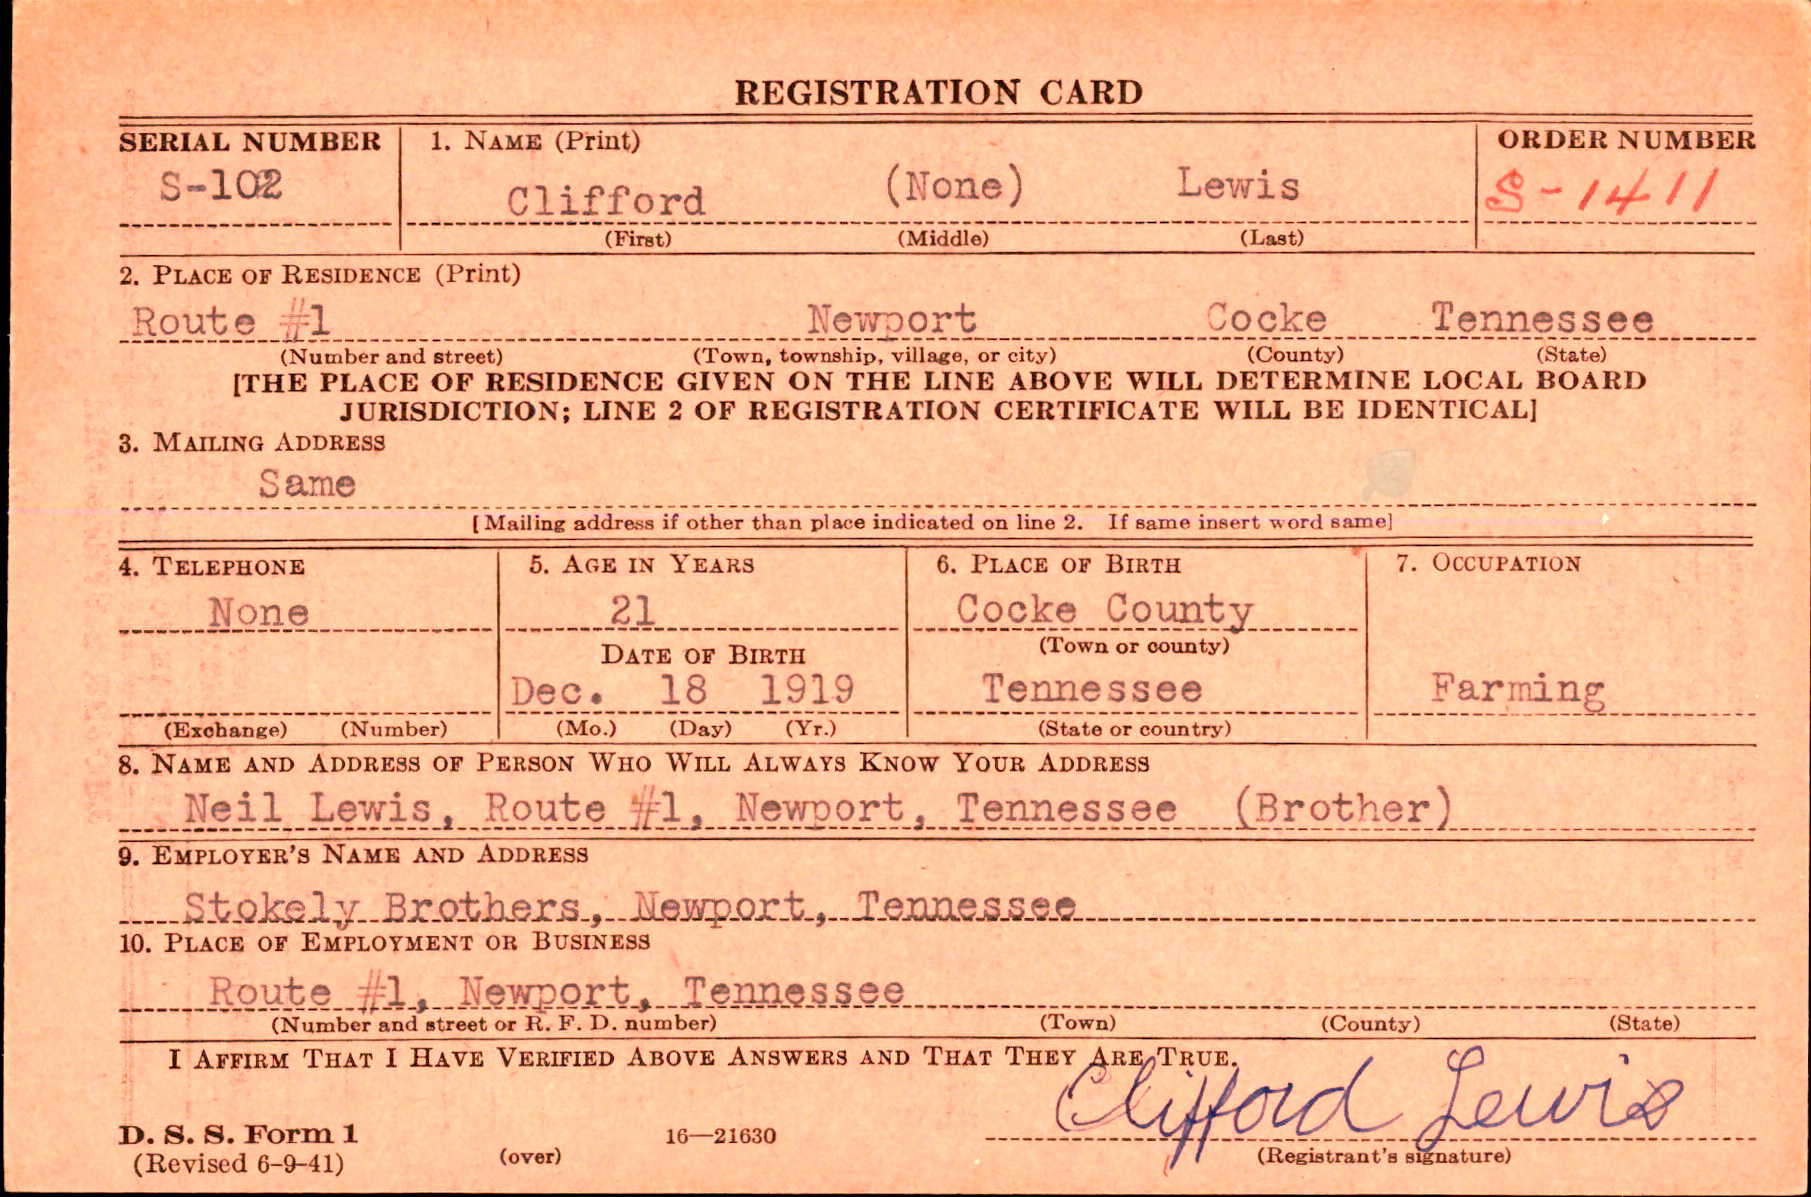 REGISTRATION CARD
SERIAL NUMBER 1. NAME (Print) ORDER NUMBER
S-102 Clifford (None) Lewis S-1411
(First) (Middle) (Last)
2. PLACE OF RESIDENCE (Print)
Route #1 Newport Cocke Tennessee
(Number and street) (Town, township, village, or city) (County) (State)
[THE PLACE OF RESIDENCE GIVEN ON THE LINE ABOVE WILL DETERMINE LOCAL BOARD
JURISDICTION; LINE 2 OF REGISTRATION CERTIFICATE WILL BE IDENTICAL]
3. MAILING ADDRESS
Same
[Mailing address if other than place indicated on line 2. If same insert word same]
4. TELEPHONE 5. AGE IN YEARS 6. PLACE OF BIRTH 7. OCCUPATION
None 21 Cocke County
DATE OF BIRTH (Town or county)
Dec. 18 1919 Tennessee Farming
(Exchange) (Number) (Mo.) (Day) (Yr.) (State or country)
8. NAME AND ADDRESS OF PERSON WHO WILL ALWAYS KNOW YOUR ADDRESS
Neil Lewis, Route #1, Newport, Tennessee (Brother)
9. EMPLOYER'S NAME AND ADDRESS
Stokely Brothers, Newport, Tennessee
10. PLACE OF EMPLOYMENT OR BUSINESS
Route #1, Newport, Tennessee
(Number and street or R. F. D. number) (Town) (County) (State)
I AFFIRM THAT I HAVE VERIFIED ABOVE ANSWERS AND THAT THEY ARE TRUE.
Clifford Lewis
D. S. S. Form 1 16—21630
(Revised 6-9-41) (over) (Registrant's signature)